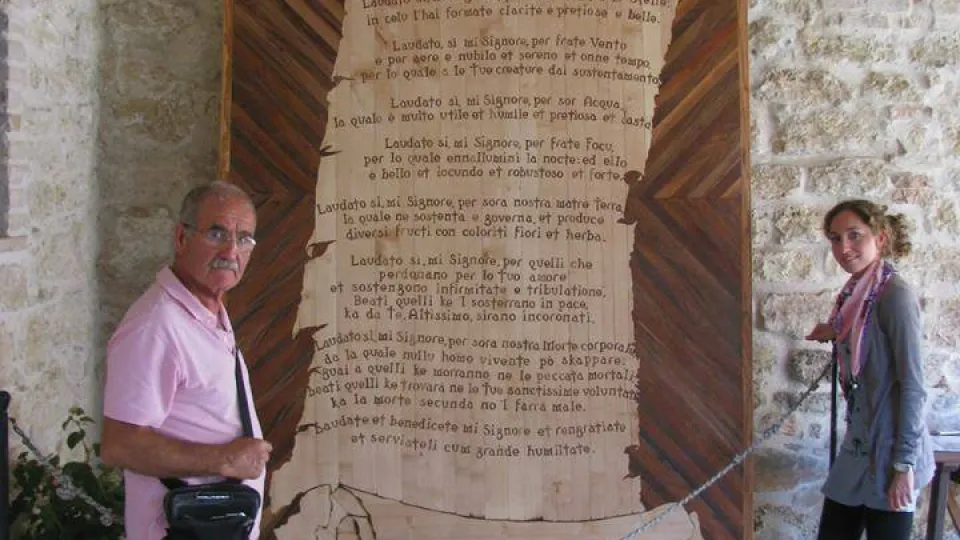 in celu l'hai formate clarite e pretiose e belle.
Laudato, si mi Signore, per frate Vento
e per aere e nubilo et sereno et onne tempo,
per lo quale a le Tue creature dai sustentamento.
Laudato si, mi Signore, per sor Acqua,
la quale è multo utile et humile et pretiosa et casta
Laudato si, mi Signore, per frate Focu,
per lo quale ennallumini la nocte: ed ello
e bello et iocundo et robustoso et forte.
Laudato si, mi Signore, per sora nostra matre Terra,
la quale ne sostenta e governa, et produce
diversi fructi con coloriti fiori et herba.
Laudato si, mi Signore, per quelli che
perdonano per lo tuo amore
et sostengono infirmitate e tribulatione,
Beati quelli ke 'l sosterrano in pace,
ka da Te, Altissimo, sirano incoronati.
Laudato si, mi Signore, per sora nostra Morte corporale
da la quale nullu homo vivente pò skappare:
guai a quelli ke morranno ne le peccata mortali
beati quelli ke trovarà ne le tue sanctissime voluntati
ka la morte secunda no 'l farra male.
Laudate et benedicete mi Signore et rengratiate
et serviateli cum grande humiltate.